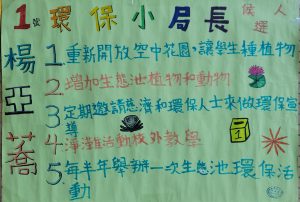 1號環保小局長候選人
楊亞蕎
1.重新開放空中花園,讓學生種植物
2.增加生態池植物和動物
3.定期邀請慈濟和環保人士來做環保宣導
4.淨灘活動校外教學
5.每半年舉辦一次生態池環保活動